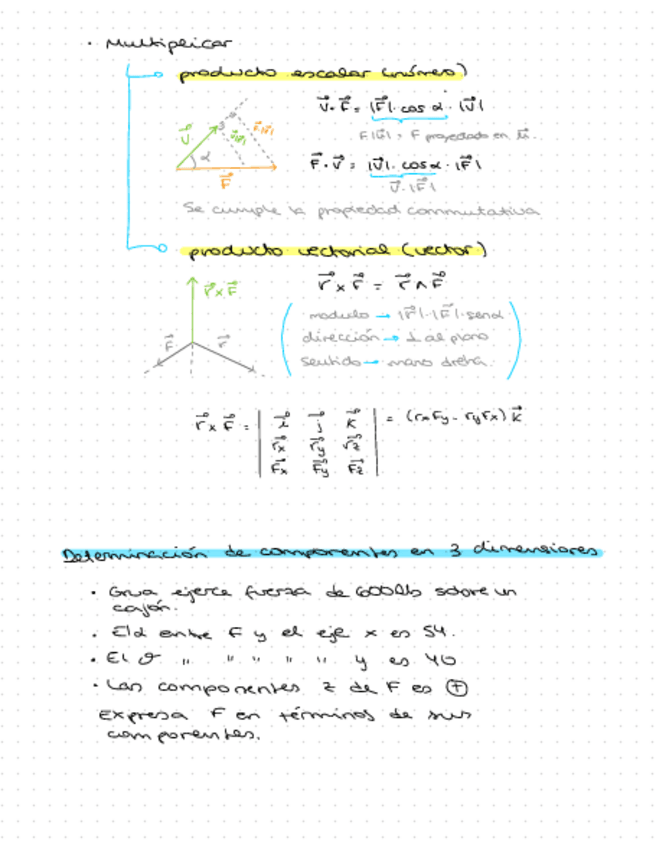 · Multiplicar
producto escalar (número)
V⃗ · F⃗ = |F⃗| · cos α · |V⃗|
V⃗
α
F⃗
F⃗ · V⃗ = |V⃗| · cos α · |F⃗|
Se cumple la propiedad conmutativa
producto vectorial (vector)
r⃗ x F⃗ = r⃗ ∧ F⃗
r⃗ x F⃗
F⃗
r⃗
modulo → |r⃗| · |F⃗| · sen α
dirección → ⊥ al plano
sentido → mano drcha.
r⃗ x F⃗ = | i⃗ j⃗ k⃗ | = (rxFy - ryFx) k⃗
r⃗x r⃗y r⃗z
F⃗x F⃗y F⃗z
Determinación de componentes en 3 dimensiones
· Grua ejerce fuerza de 600lb sobre un
cajón.
· El α entre F y el eje x es 54.
· El θ " " " " " y es 40
· Las componentes z de F es ⊕
Expresa F en términos de sus
componentes.